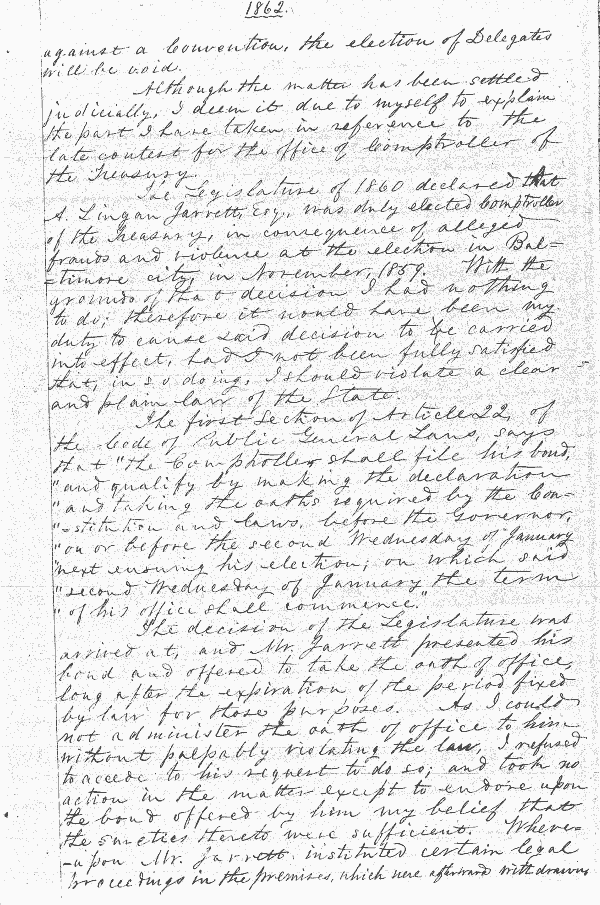 1862.
against a Convention, the election of Delegates
will be void.
Although the matter has been settled
judicially, I deem it due to myself to explain
the part I have taken in reference to the
late contest for the office of Comptroller of
the Treasury.
The Legislature of 1860 declared that
A. Lingan Jarrett, Esq., was duly elected Comptroller
of the Treasury, in consequence of alleged
frauds and violence at the election in Bal=
=timore city, in November, 1859. With the
grounds of that decision I had nothing
to do; therefore it would have been my
duty to cause said decision to be carried
into effect, had I not been fully satisfied
that, in so doing, I should violate a clear
and plain law of the State.
The first Section of Article 22, of
the Code of Public General Laws, says
that "the Comptroller shall file his bond,
"and qualify by making the declaration
"and taking the oaths required by the Con-
"-stitution and laws, before the Governor,
"on or before the second Wednesday of January
"next ensuing his election; on which said
"second Wednesday of January the term
"of his office shall commence."
The decision of the Legislature was
arrived at, and Mr. Jarrett presented his
bond and offered to take the oath of office,
long after the expiration of the period fixed
by law for those purposes. As I could
not administer the oath of office to him
without palpably violating the law, I refused
to accede to his request to do so; and took no
action in the matter except to endorse upon
the bond offered by him my belief that
the sureties thereto were sufficient. Where-
-upon Mr. Jarrett instituted certain legal
proceedings in the premises, which were afterward withdrawn,